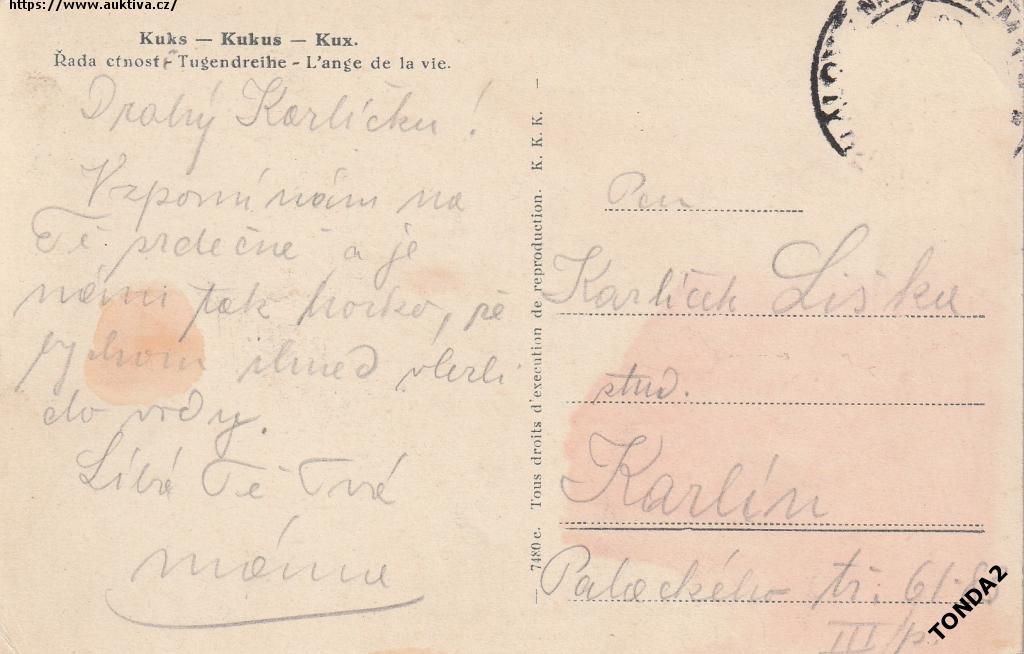 https://www.auktiva.cz/
Kuks — Kukus — Kux.
Řada ctností - Tugendreihe - L'ange de la vie.
Drahý Karlíčku!
Vzpomínám na
Tě srdečně a je
námi tak horko, že
bychom ihned vlezli
do vody.
Líbá Tě Tvá
máma
7480 c. Tous droits d'execution de reproduction. K. K. K.
Pan
Karlíček Liška
stud.
Karlín
Palackého tř. 61
III p.
TONDA2